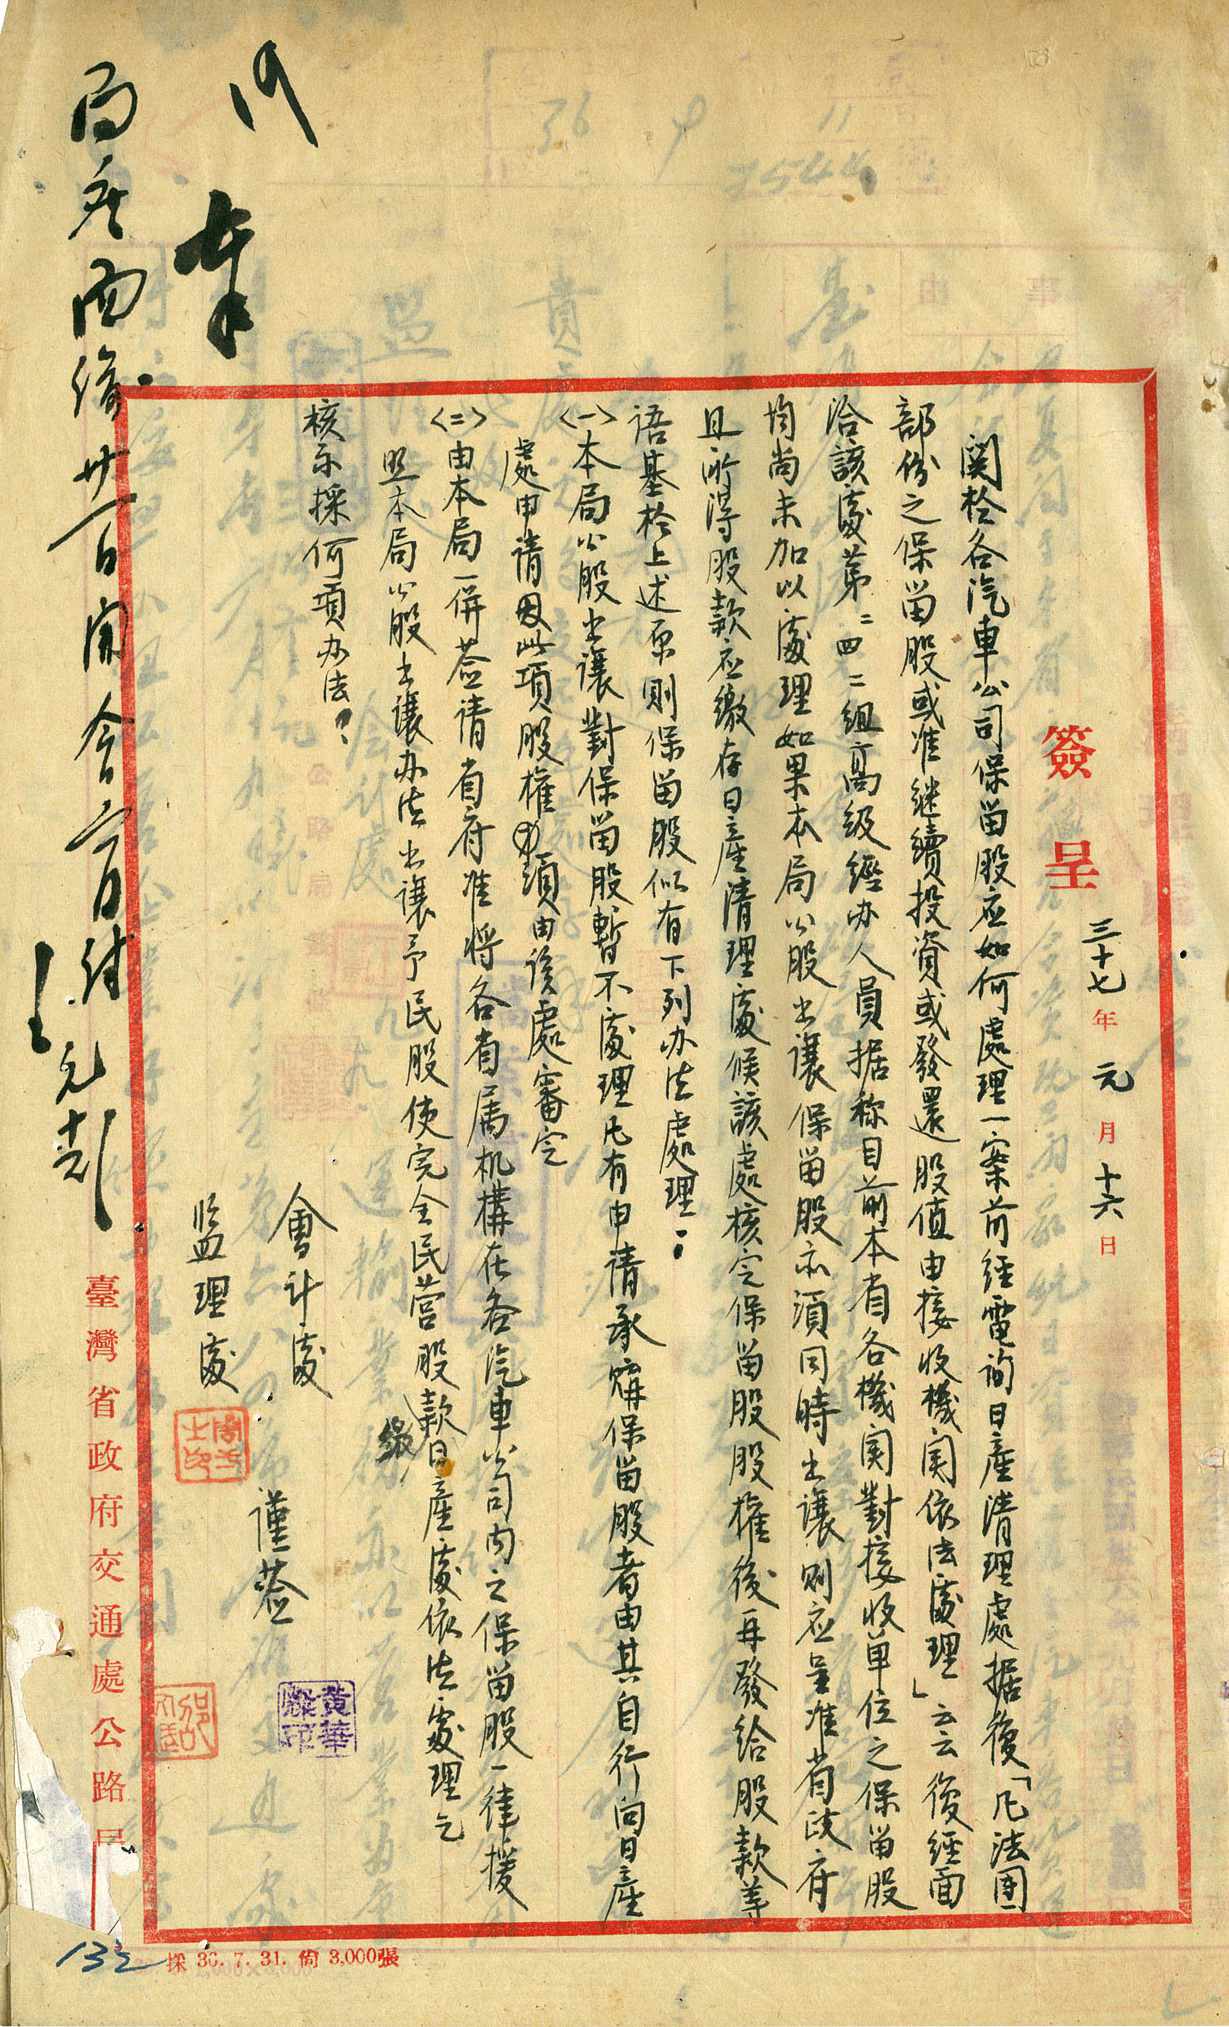 簽呈 三十七年元月十六日
関於各汽車公司保留股应如何處理一案前経電詢日產清理處据復「凡法團
部份之保留股或准継續投資或發還股值由接收機関依法處理」云云復経面
洽該處第二四二組高級經办人員据称目前本省各機関對接收单位之保留股
均尚未加以處理如果本局公股出讓保留股亦須同時出讓則应呈准省政府
且所得股款应繳存日產清理處候該處核定保留股股權後再發給股款等
语基於上述原則保留股似有下列办法處理：
〈一〉本局公股出讓對保留股暫不處理凡有申请承購保留股者由其自行向日產
處申请因此項股權須由该處審定
〈二〉由本局一併签请省府准将各省属机構在各汽車公司内之保留股一律援
照本局公股出讓办法出讓予民股使完全民营股款繳日產處依法處理乞
核示採何項办法？
會计處
監理處
謹签
黄華
臺灣省政府交通處公路局
採 36. 7. 31. 3,000張
132